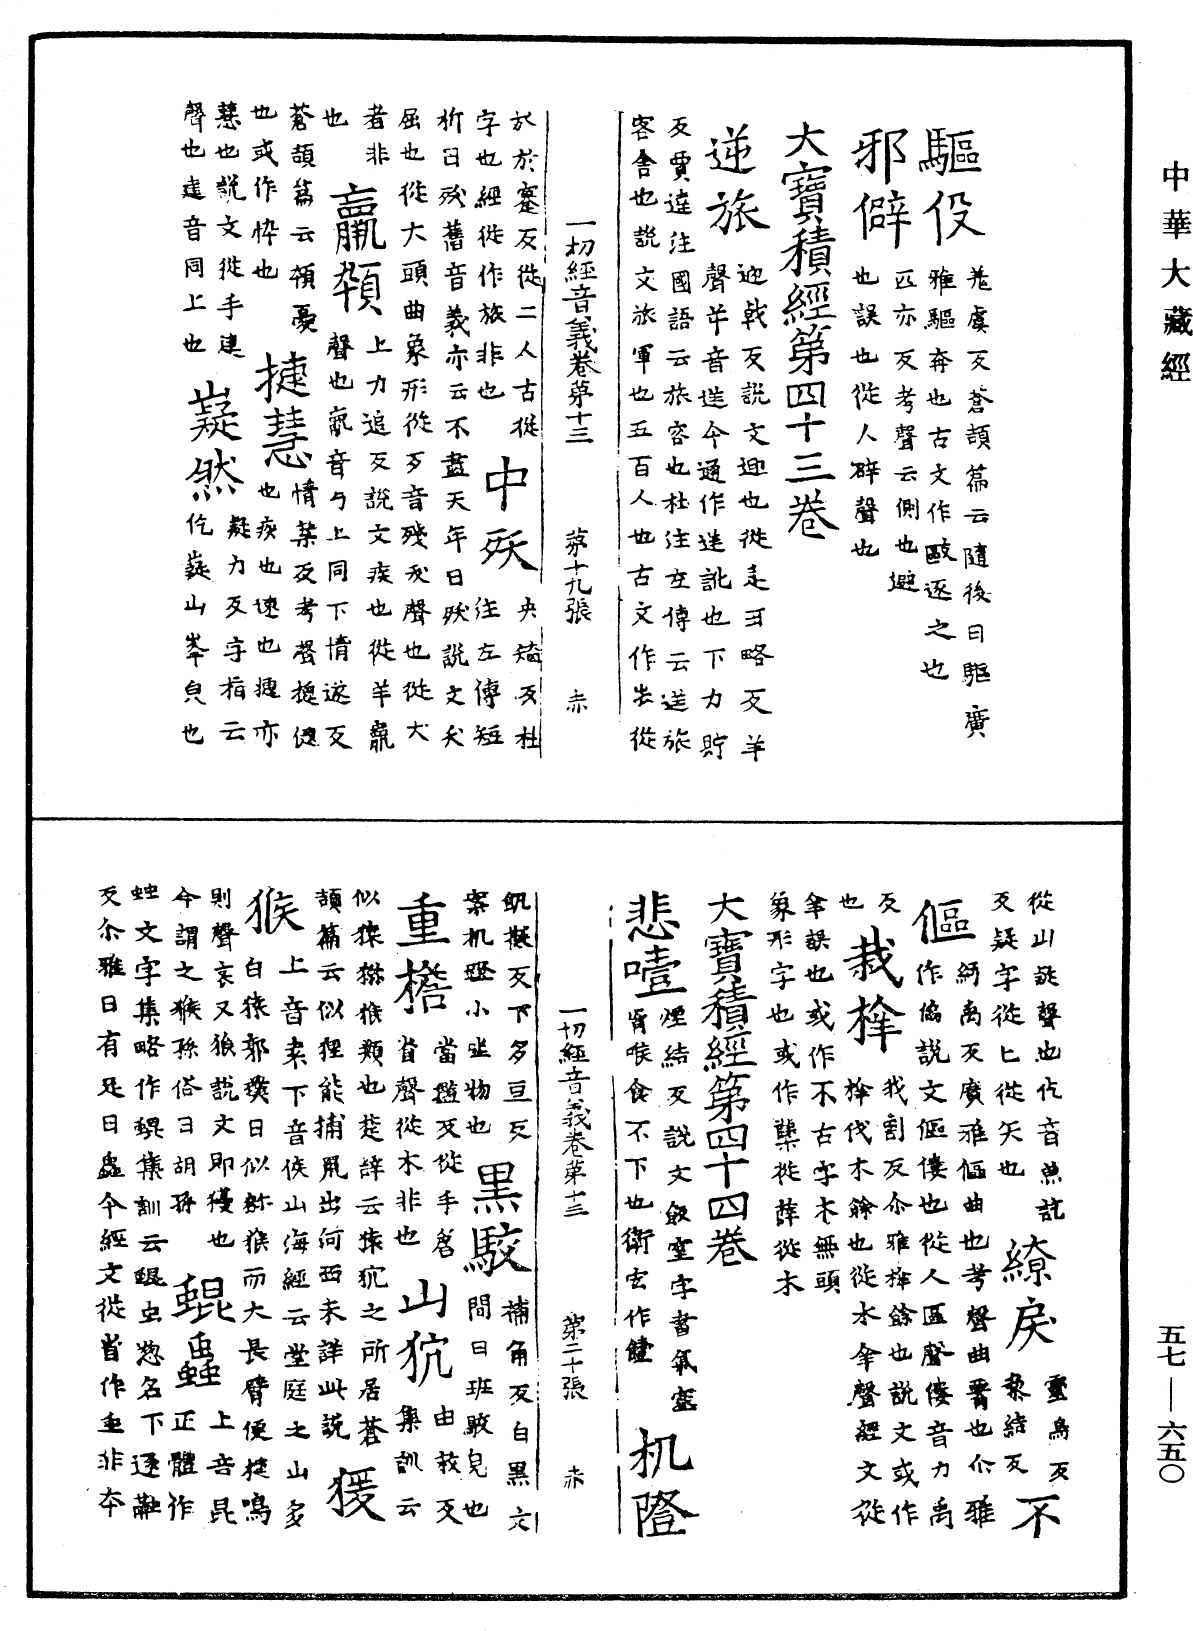 中華大藏經
驅役
羌虞反蒼頡篇云隨後曰驅廣
雅驅奔也古文作敺逐之也
邪僻
匹亦反考聲云側也避
也誤也從人辟聲也
大寶積經第四十三卷
逆旅
迎戟反說文迎也從辵屰略反羊
聲苹音逆今通作逆訛也下力貯
反賈逵注國語云旅客也杜注左傳云逆旅
客舍也說文旅軍也五百人也古文作㫃從
一切經音義卷第十三　第十九張　赤
㫃於蹇反從二人古從
字也經從作旅非也
中殀
夭矯反杜
注左傳短
折曰殀舊音義亦云不盡天年曰殀說文夭
屈也從大頭曲象形從歹音殘夭聲也從犬
者非
也
羸顇
上力追反說文疾也從羊𦝠
聲也𦝠音丂上同下情遂反
蒼頡篇云顇憂
也或作悴也
捷慧
情葉反考聲捷健
也疾也速也捷亦
慧也說文從手疌
聲也疌音同上也
嶷然
疑力反字指云
仡嶷山峯皃也
從山疑聲也仡音魚訖
反疑字從匕從矢也
繚戾
靈鳥反
黎結反
不
傴
紆禹反廣雅傴曲也考聲曲脊也尒雅
作傴說文傴僂也從人區聲僂音力禹
反
也
栽㭐
我割反尒雅㭐餘也說文或作
㭐伐木餘也從木㚔聲經文從
㚔誤也或作不古字木無頭
象形字也或作櫱從薛從木
大寶積經第四十四卷
悲噎
煙結反說文飯窒字書氣塞
胷喉食不下也衛宏作饐
机隥
一切經音義卷第十三　第二十張　赤
飢擬反下多亘反
案机隥小坐物也
黑駮
補角反白黑文
間曰班駮皃也
重檐
當濫反從手詹
省聲從木非也
山狖
由救反
集訓云
似猿㺊猴類也楚辭云猿狖之所居蒼
頡篇云似狸能捕鼠出河西未詳此說
猨
猴
上音袁下音侯山海經云堂庭之山多
白猿郭璞曰似猕猴而大長臂便捷鳴
則聲哀又猴說文即玃也
今謂之猴孫俗曰胡孫
蜫䖝
上音昆
正體作
䖵文字集略作蜫集訓云蜫虫惣名下逐融
反尒雅曰有足曰蟲今經文從省作虫非本
五七—六五〇